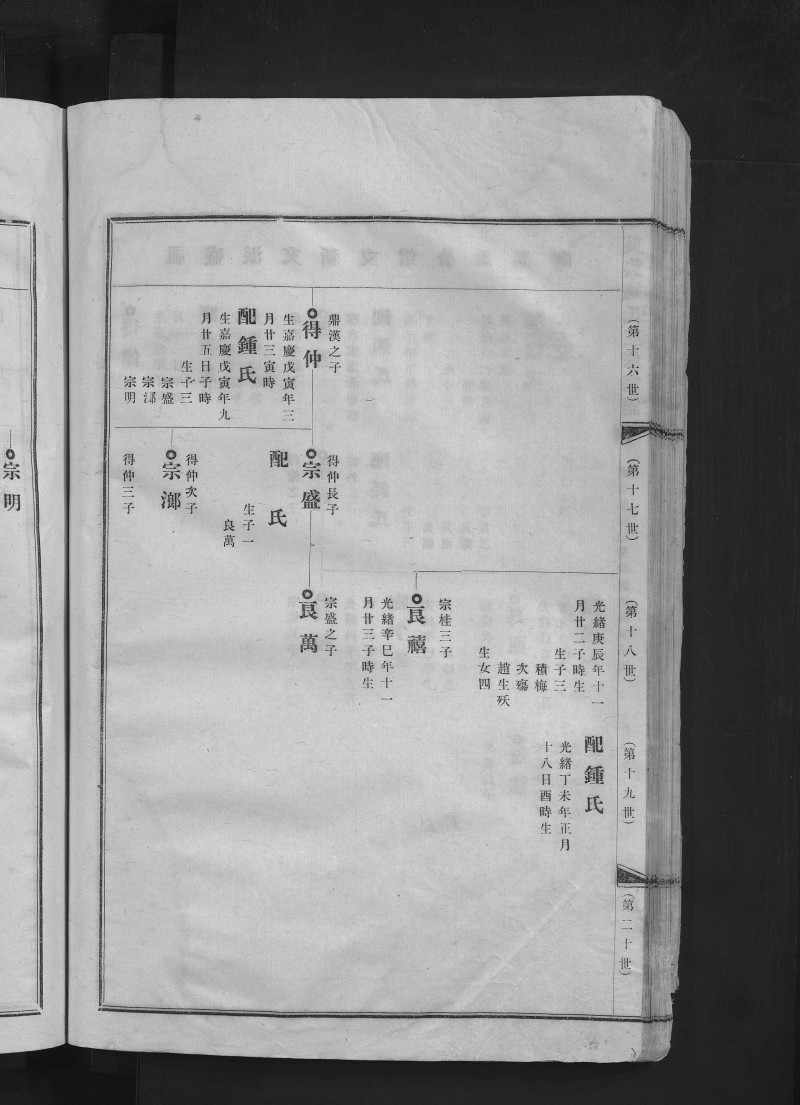 （第十六世）
（第十七世）
（第十八世）
（第十九世）
（第二十世）
鼎漢之子
得仲
生嘉慶戊寅年三
月廿三寅時
配鍾氏
生嘉慶戊寅年九
月廿五日子時
生子三
宗盛
宗䣊
宗明
得仲長子
宗盛
配 氏
生子一
良萬
得仲次子
宗䣊
得仲三子
光緒庚辰年十一
月廿二子時生
生子三
積梅
次殤
趙生殀
生女四
宗桂三子
良禧
光緒辛巳年十一
月廿三子時生
宗盛之子
良萬
配鍾氏
光緒丁未年正月
十八日酉時生
宗明